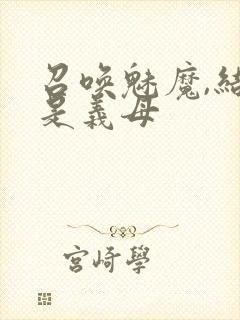 召喚魅魔,結
是義母
宮崎學